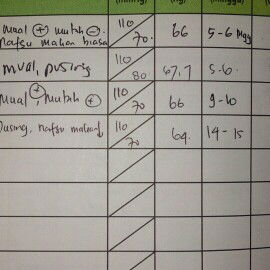 (mmHg) (kg) (minggu)
mual (+) muntah (-). 110/70. 66 5-6 Mgg
nafsu makan biasa
mual, pusing 110/80 67,7 5-6.
mual (+), muntah (+) 110/70 66 9-10
pusing, nafsu makan↓ 110/70 64. 14-15